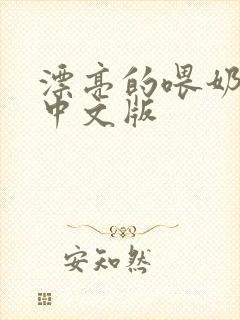 漂亮的喂奶
中文版
安知然